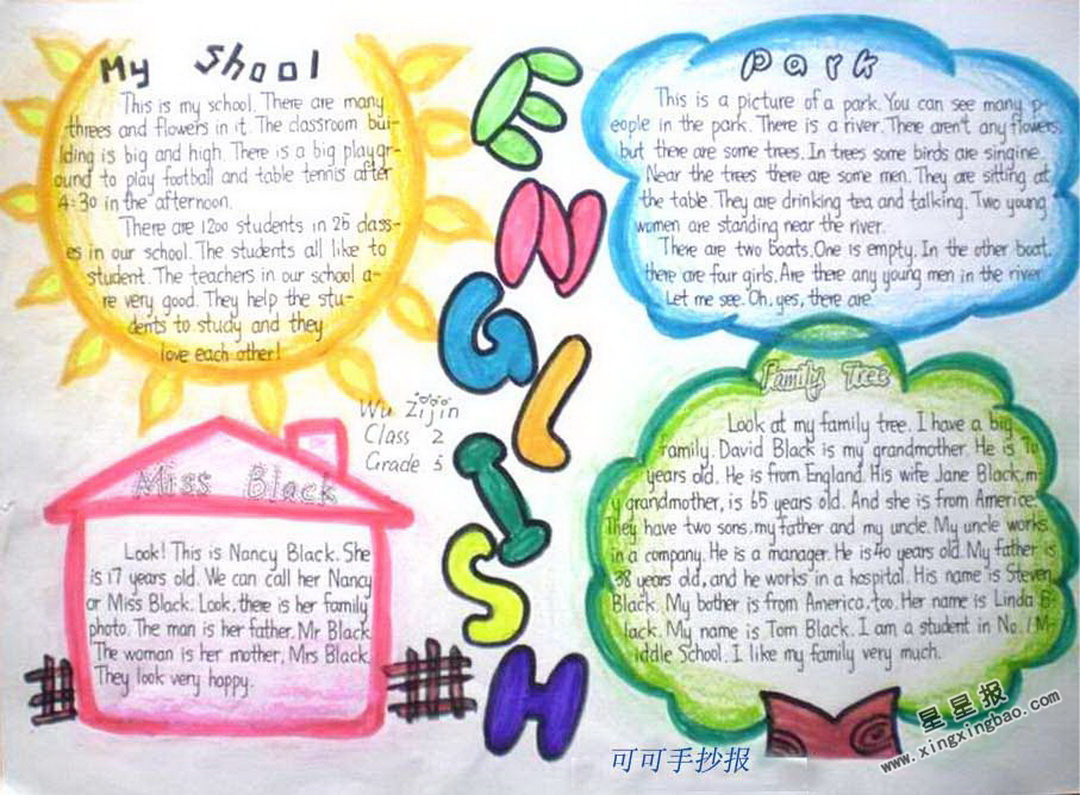 My Shool
This is my school. There are many
threes and flowers in it. The classroom bui-
lding is big and high. There is a big playgr-
ound to play football and table tennis after
4:30 in the afternoon.
There are 1200 students in 25 class-
es in our school. The students all like to
student. The teachers in our school a-
re very good. They help the stu-
dents to study and they
love each other!
ENGLISH
Park
This is a picture of a park. You can see many p-
eople in the park. There is a river. There aren't any flowers,
but there are some trees. In trees some birds are singine.
Near the trees there are some men. They are sitting at
the table. They are drinking tea and talking. Two young
women are standing near the river.
There are two boats. One is empty. In the other boat,
there are four girls. Are there any young men in the river
Let me see. Oh, yes, there are.
Wu Zijin
Class 2
Grade
Miss Black
Look! This is Nancy Black. She
is 17 years old. We can call her Nancy
or Miss Black. Look, there is her family
photo. The man is her father, Mr Black.
The woman is her mother, Mrs Black.
They look very happy.
Family Tree
Look at my family tree. I have a big
family. David Black is my grandmother. He is
years old. He is from England. His wife Jane Black, m-
y grandmother, is 65 years old. And she is from Americe.
They have two sons, my father and my uncle. My uncle works
in a company. He is a manager. He is 40 years old. My father is
38 years old, and he works in a hospital. His name is Steven
Black. My bother is from America, too. Her name is Linda B-
lack. My name is Tom Black. I am a student in No. 1 M-
iddle School. I like my family very much.
可可手抄报
星星报
www.xingxingbao.com